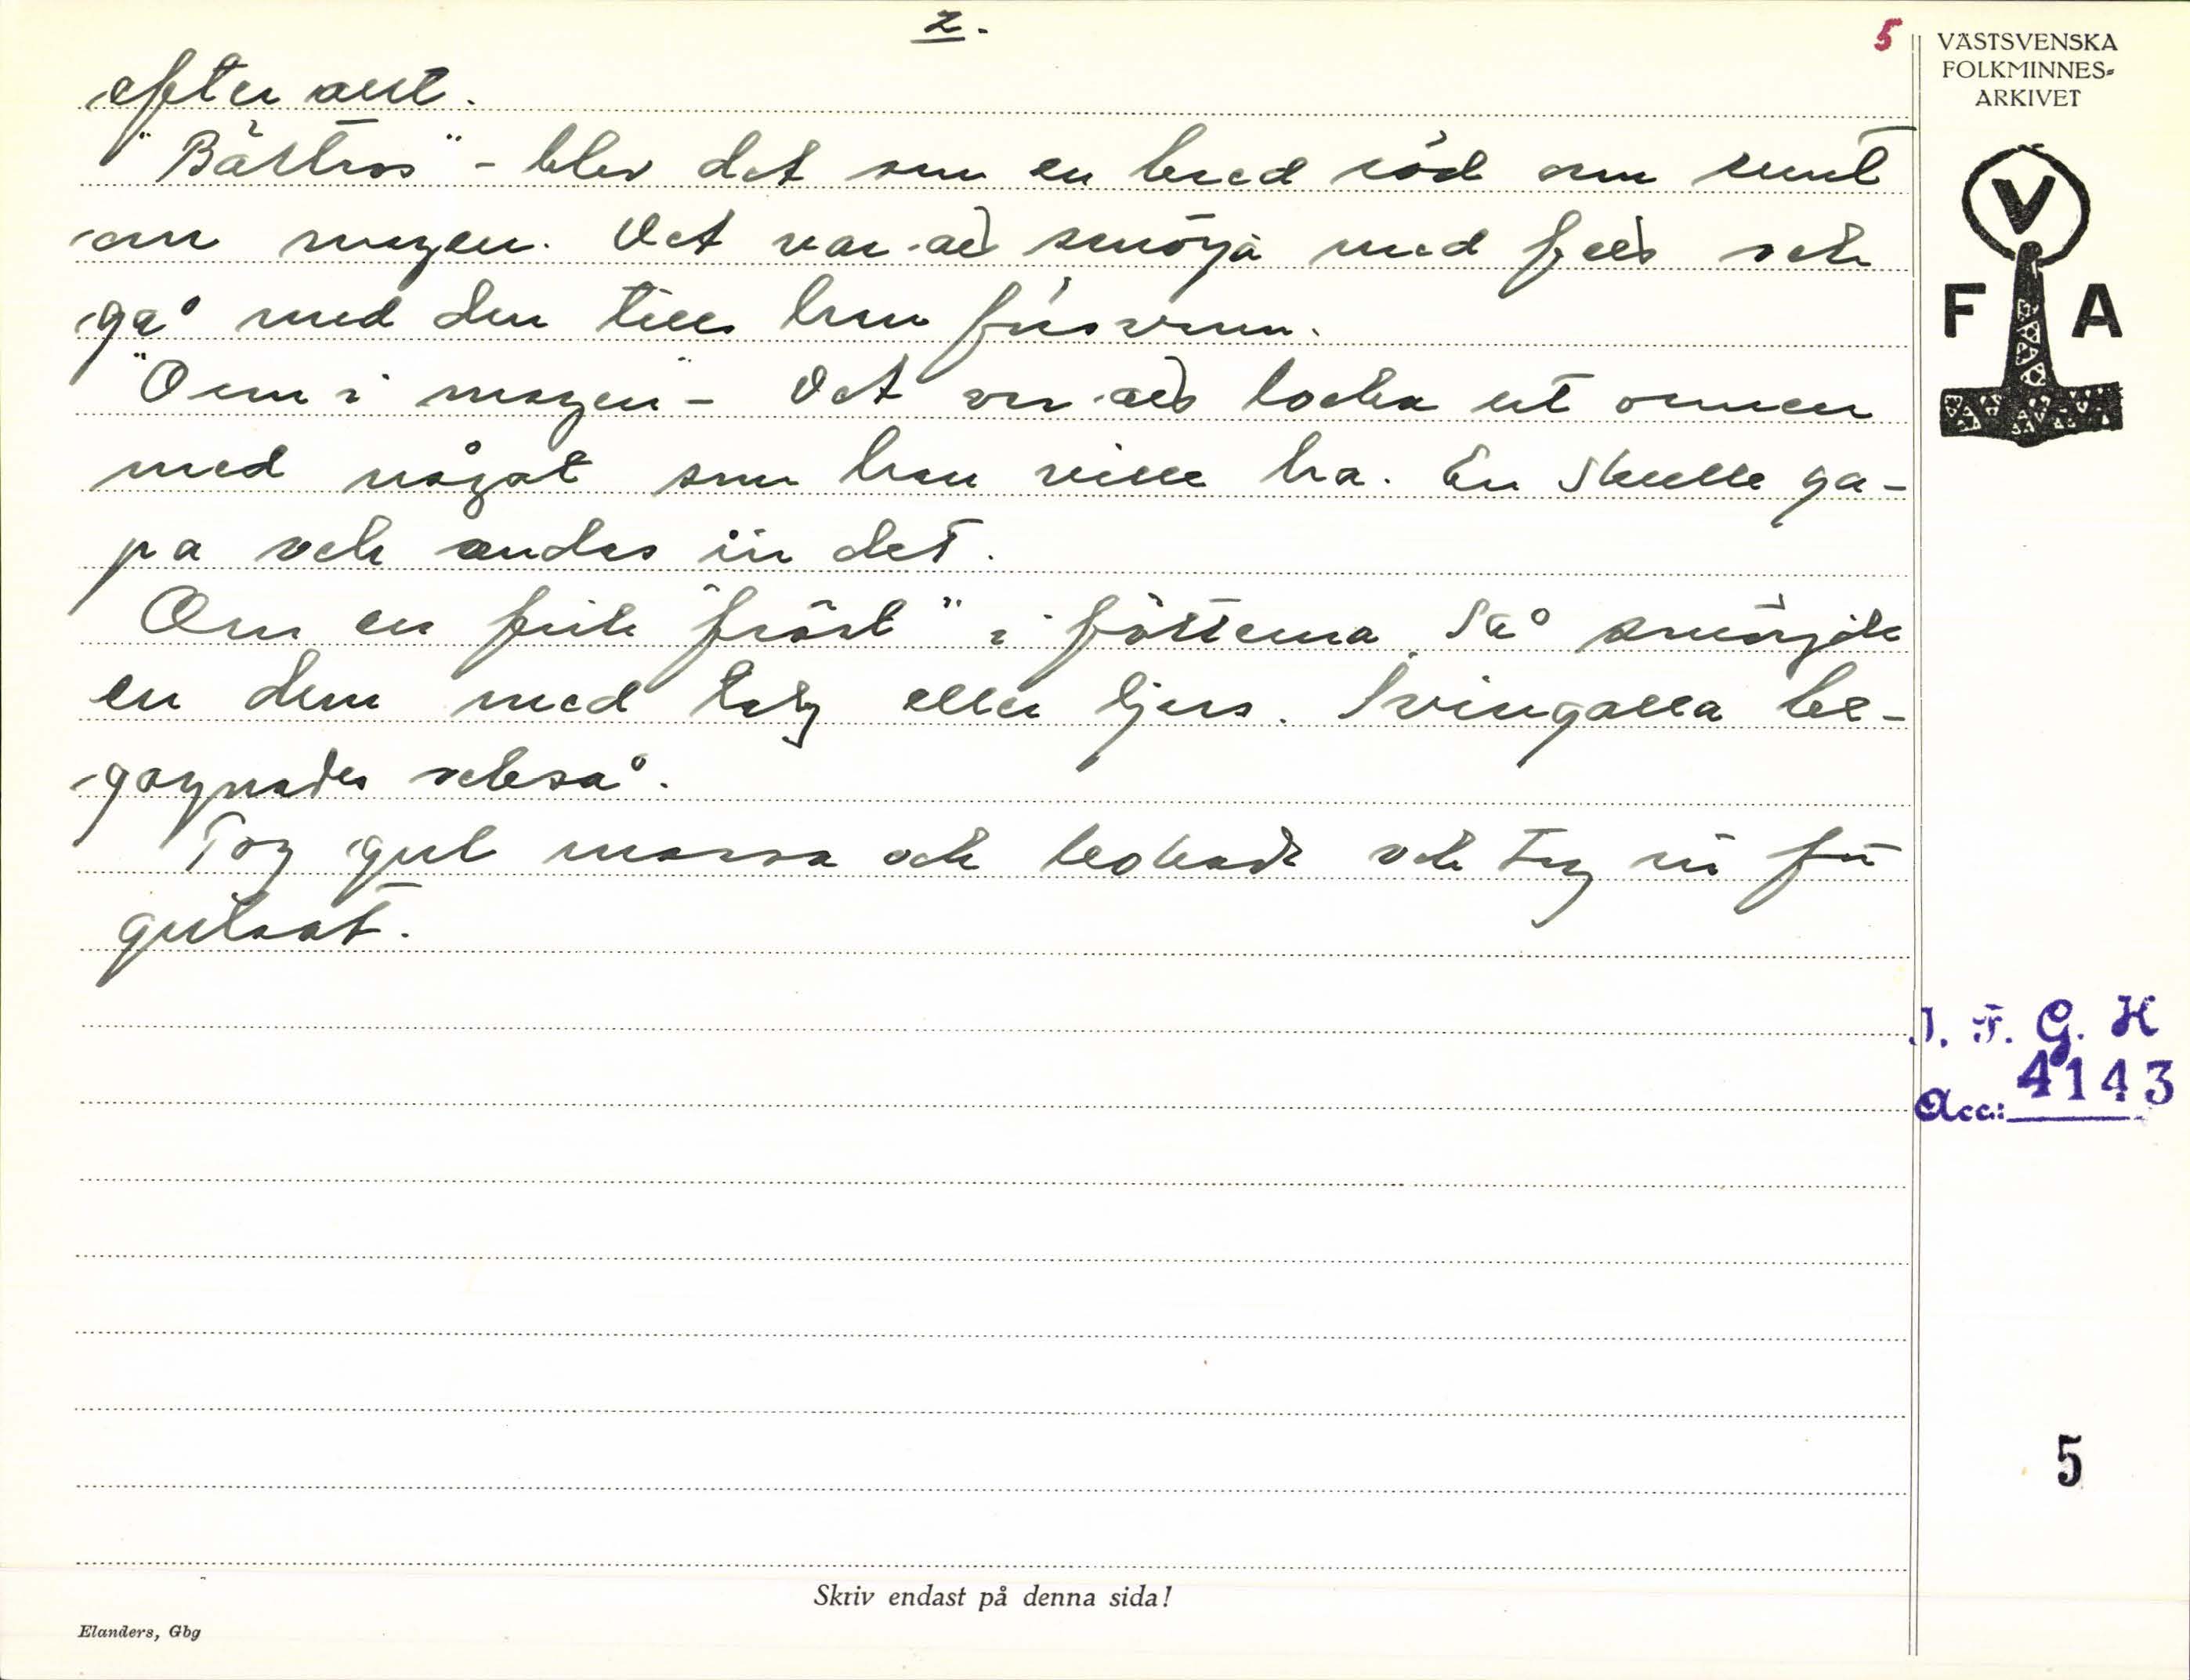 2.
5
VÄSTSVENSKA
FOLKMINNES-
ARKIVET
efteråt.
"Bältros" - blev det som en bred röd om runt
om magen. Det var att smörja med och
gå med den till
"Orm i magen" - Det var att locka ut ormen
med något som han ville ha. En skulle ga-
pa och andas in det.
Om en fick "fröst" i fötterna, så smörjde
en dem med talg eller ljus. Svingalla be-
gagnades också.
Tog gul mossa och kokade och tog in för
gulsot.
V
F A
I. F. G. H
4143
Acc:
5
Skriv endast på denna sida!
Elanders, Gbg